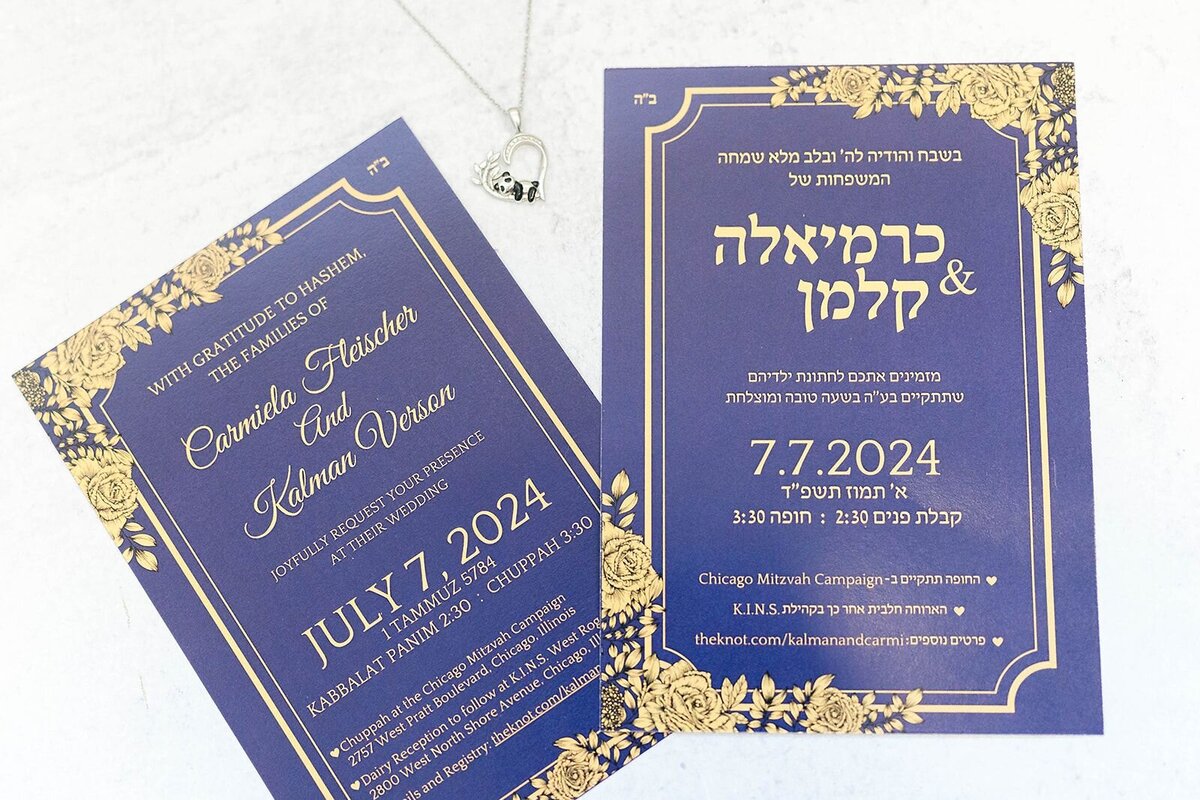 ב"ה
WITH GRATITUDE TO HASHEM,
THE FAMILIES OF
Carmiela Fleischer
And
Kalman Verson
JOYFULLY REQUEST YOUR PRESENCE
AT THEIR WEDDING
JULY 7, 2024
1 TAMMUZ 5784
KABBALAT PANIM 2:30 : CHUPPAH 3:30
♥Chuppah at the Chicago Mitzvah Campaign
2757 West Pratt Boulevard, Chicago, Illinois
♥Dairy Reception to follow at K.I.N.S. West
2800 West North Shore Avenue, Chicago,
and Registry: theknot.com/kalman
ב"ה
בשבח והודיה לה' ובלב מלא שמחה
המשפחות של
כרמיאלה
& קלמן
מזמינים אתכם לחתונת ילדיהם
שתתקיים בע"ה בשעה טובה ומוצלחת
7.7.2024
א' תמוז תשפ"ד
קבלת פנים 2:30 : חופה 3:30
♥ החופה תתקיים ב-Chicago Mitzvah Campaign
♥ הארוחה חלבית אחר כך בקהילת K.I.N.S.
♥ פרטים נוספים: theknot.com/kalmanandcarmi